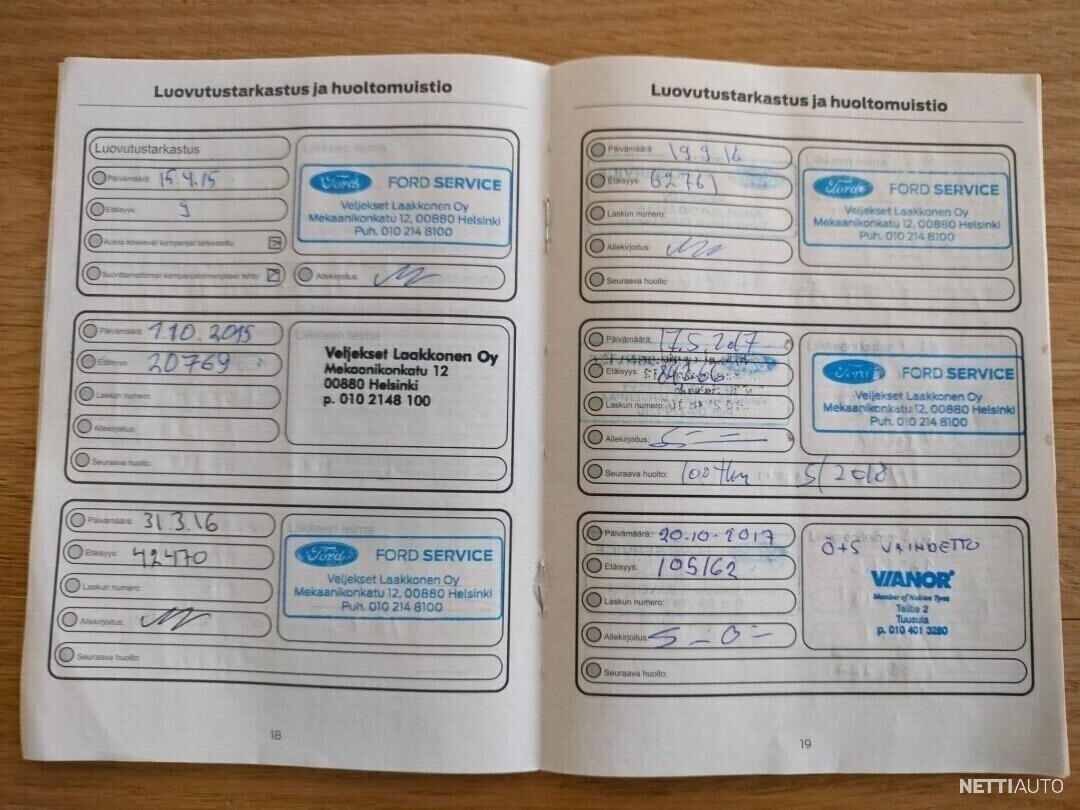 Luovutustarkastus ja huoltomuistio
Luovutustarkastus
Liikkeen leima
Päivämäärä: 15.4.15
Etäisyys: 9
Autoa koskevat kampanjat tarkastettu
Suorittamattomat kampanjatoimenpiteet tehty
Allekirjoitus:
Ford FORD SERVICE
Veljekset Laakkonen Oy
Mekaanikonkatu 12, 00880 Helsinki
Puh. 010 214 8100
Päivämäärä: 1.10.2015
Etäisyys: 20769
Laskun numero:
Allekirjoitus:
Seuraava huolto:
Liikkeen leima
Veljekset Laakkonen Oy
Mekaanikonkatu 12
00880 Helsinki
p. 010 2148 100
Päivämäärä: 31.3.16
Etäisyys: 42470
Laskun numero:
Allekirjoitus:
Seuraava huolto:
Liikkeen leima
Ford FORD SERVICE
Veljekset Laakkonen Oy
Mekaanikonkatu 12, 00880 Helsinki
Puh. 010 214 8100
18
Luovutustarkastus ja huoltomuistio
Päivämäärä: 19.9.16
Etäisyys: 62761
Laskun numero:
Allekirjoitus:
Seuraava huolto:
Liikkeen leima
Ford FORD SERVICE
Veljekset Laakkonen Oy
Mekaanikonkatu 12, 00880 Helsinki
Puh. 010 214 8100
Päivämäärä: 17.5.2017
Etäisyys:
Laskun numero:
Allekirjoitus:
Seuraava huolto: 100tkm 5/2018
Liikkeen leima
Ford FORD SERVICE
Veljekset Laakkonen Oy
Mekaanikonkatu 12, 00880 Helsinki
Puh. 010 214 8100
Päivämäärä: 20.10-2017
Etäisyys: 105162
Laskun numero:
Allekirjoitus:
Seuraava huolto:
Ö+S VAIHDETTU
VIANOR
Member of Nokian Tyres
Taitie 2
Tuusula
p. 010 401 3280
19
NETTIAUTO